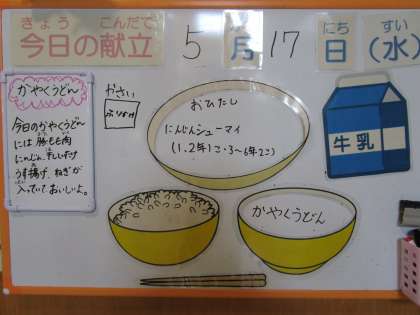 きょう こんだて
今日の献立 5 月 17 日 (水)
にち すい
かやくうどん
今日のかやくうどん
には 豚もも肉
にんじん、干ししいたけ
うす揚げ、ねぎが
入っていておいしいよ。
かさい
おひたし
にんじんシューマイ
(1.2年1こ・3〜6年2こ)
牛乳
かやくうどん